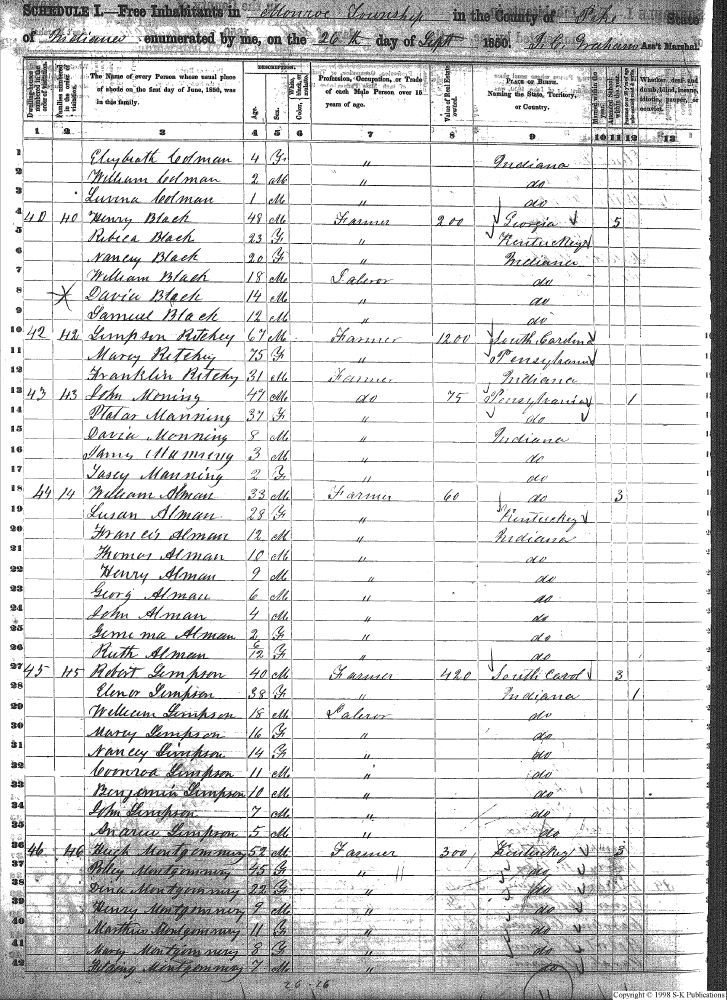 SCHEDULE I.—Free Inhabitants in Monroe Township in the County of Pike State
of Indiana enumerated by me, on the 26th day of Sept 1850. J. C. Graham Ass't Marshal.
Dwelling-houses numbered in the order of visitation.
Families numbered in the order of visitation.
The Name of every Person whose usual place of abode on the first day of June, 1850, was in this family.
DESCRIPTION.
Age.
Sex.
White, black, or mulatto.
Color,
Profession, Occupation, or Trade of each Male Person over 15 years of age.
Value of Real Estate owned.
PLACE OF BIRTH. Naming the State, Territory, or Country.
Married within the year.
Whether deaf and dumb, blind, insane, idiotic, pauper, or convict.
1 2 3 4 5 6 7 8 9 10 11 12 13
1 Elizibeath Colman 4 F " Indiana
2 William Colman 2 M " do
3 Lurina Colman 1 M " do
4 40 40 Henry Black 48 M Farmer 200 Georgia 5
5 Rebica Black 23 F " Kentuckey
6 Nancy Black 20 F " Indiana
7 William Black 18 M Laberor do
8 David Black 14 M " do
9 Samuel Black 12 M " do
10 42 42 Simpson Ritchey 67 M Farmer 1200 South Carolina
11 Marey Ritchey 75 F " Pensylvania
12 Franklin Ritchy 31 M Farmer Indiana
13 43 43 John Moning 47 M do 75 Pensylvania 1
14 Manning 37 F " do
15 David Monning 8 M " Indiana
16 3 M " do
17 Manning 2 F " do
18 44 14 William Alman 33 M Farmer 60 do 3
19 Susan Alman 28 F " Kentuckey
20 Francis Alman 12 M " Indiana
21 Thomas Alman 10 M " do
22 Henry Alman 9 M " do
23 Georg Alman 6 M " do
24 John Alman 4 M " do
25 Gemima Alman 2 F " do
26 Ruth Alman 6/12 F " do
27 45 45 Robert Simpson 40 M Farmer 420 South Carol 3
28 Elenor Simpson 38 F " Indiana 1
29 William Simpson 18 M Laberor do
30 Marey Simpson 16 F " do
31 Nancey Simpson 14 F " do
32 Coonrod Simpson 11 M " do
33 Benjamin Simpson 10 M " do
34 John Simpson 7 M " do
35 Andrew Simpson 5 M " do
36 46 46 Hugh Montgommry 52 M Farmer 300 Kentuckey 3
37 Polley Montgommry 45 F " do
38 Dina Montgommry 22 F " do
39 Henry Montgommry 9 M " do
40 Montgommry 11 F " do
41 Marey Montgommry 8 F " do
42 Montgommry 7 M " do
26-26
Copyright © 1998 S-K Publications